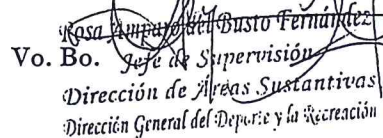 Rosa Amparo del Busto Fernández
Vo. Bo. Jefe de Supervisión
Dirección de Áreas Sustantivas
Dirección General del Deporte y la Recreación